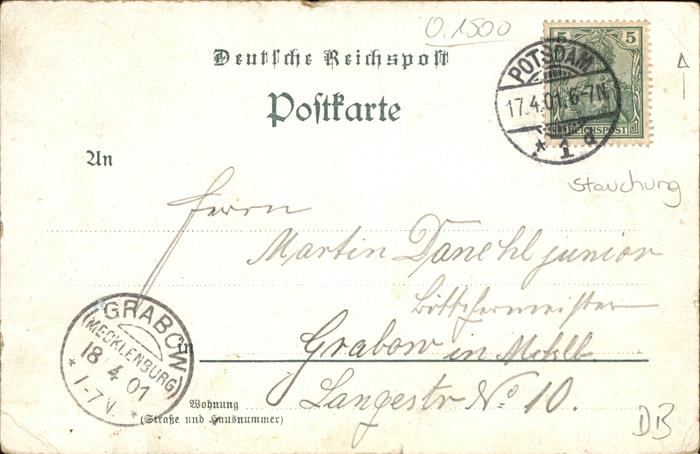 0.1500
Deutsche Reichspost
Postkarte
5 5
REICHSPOST
POTSDAM
17.4.01.6-7N.
* 1 d
Stauchung
An
Herrn
Martin Danehl junior
Böttchermeister
Grabow in Meklb.
Langestr No 10.
GRABOW
(MECKLENBURG)
18 4 01
* 1-7 V. *
in
Wohnung
(Straße und Hausnummer)
DB